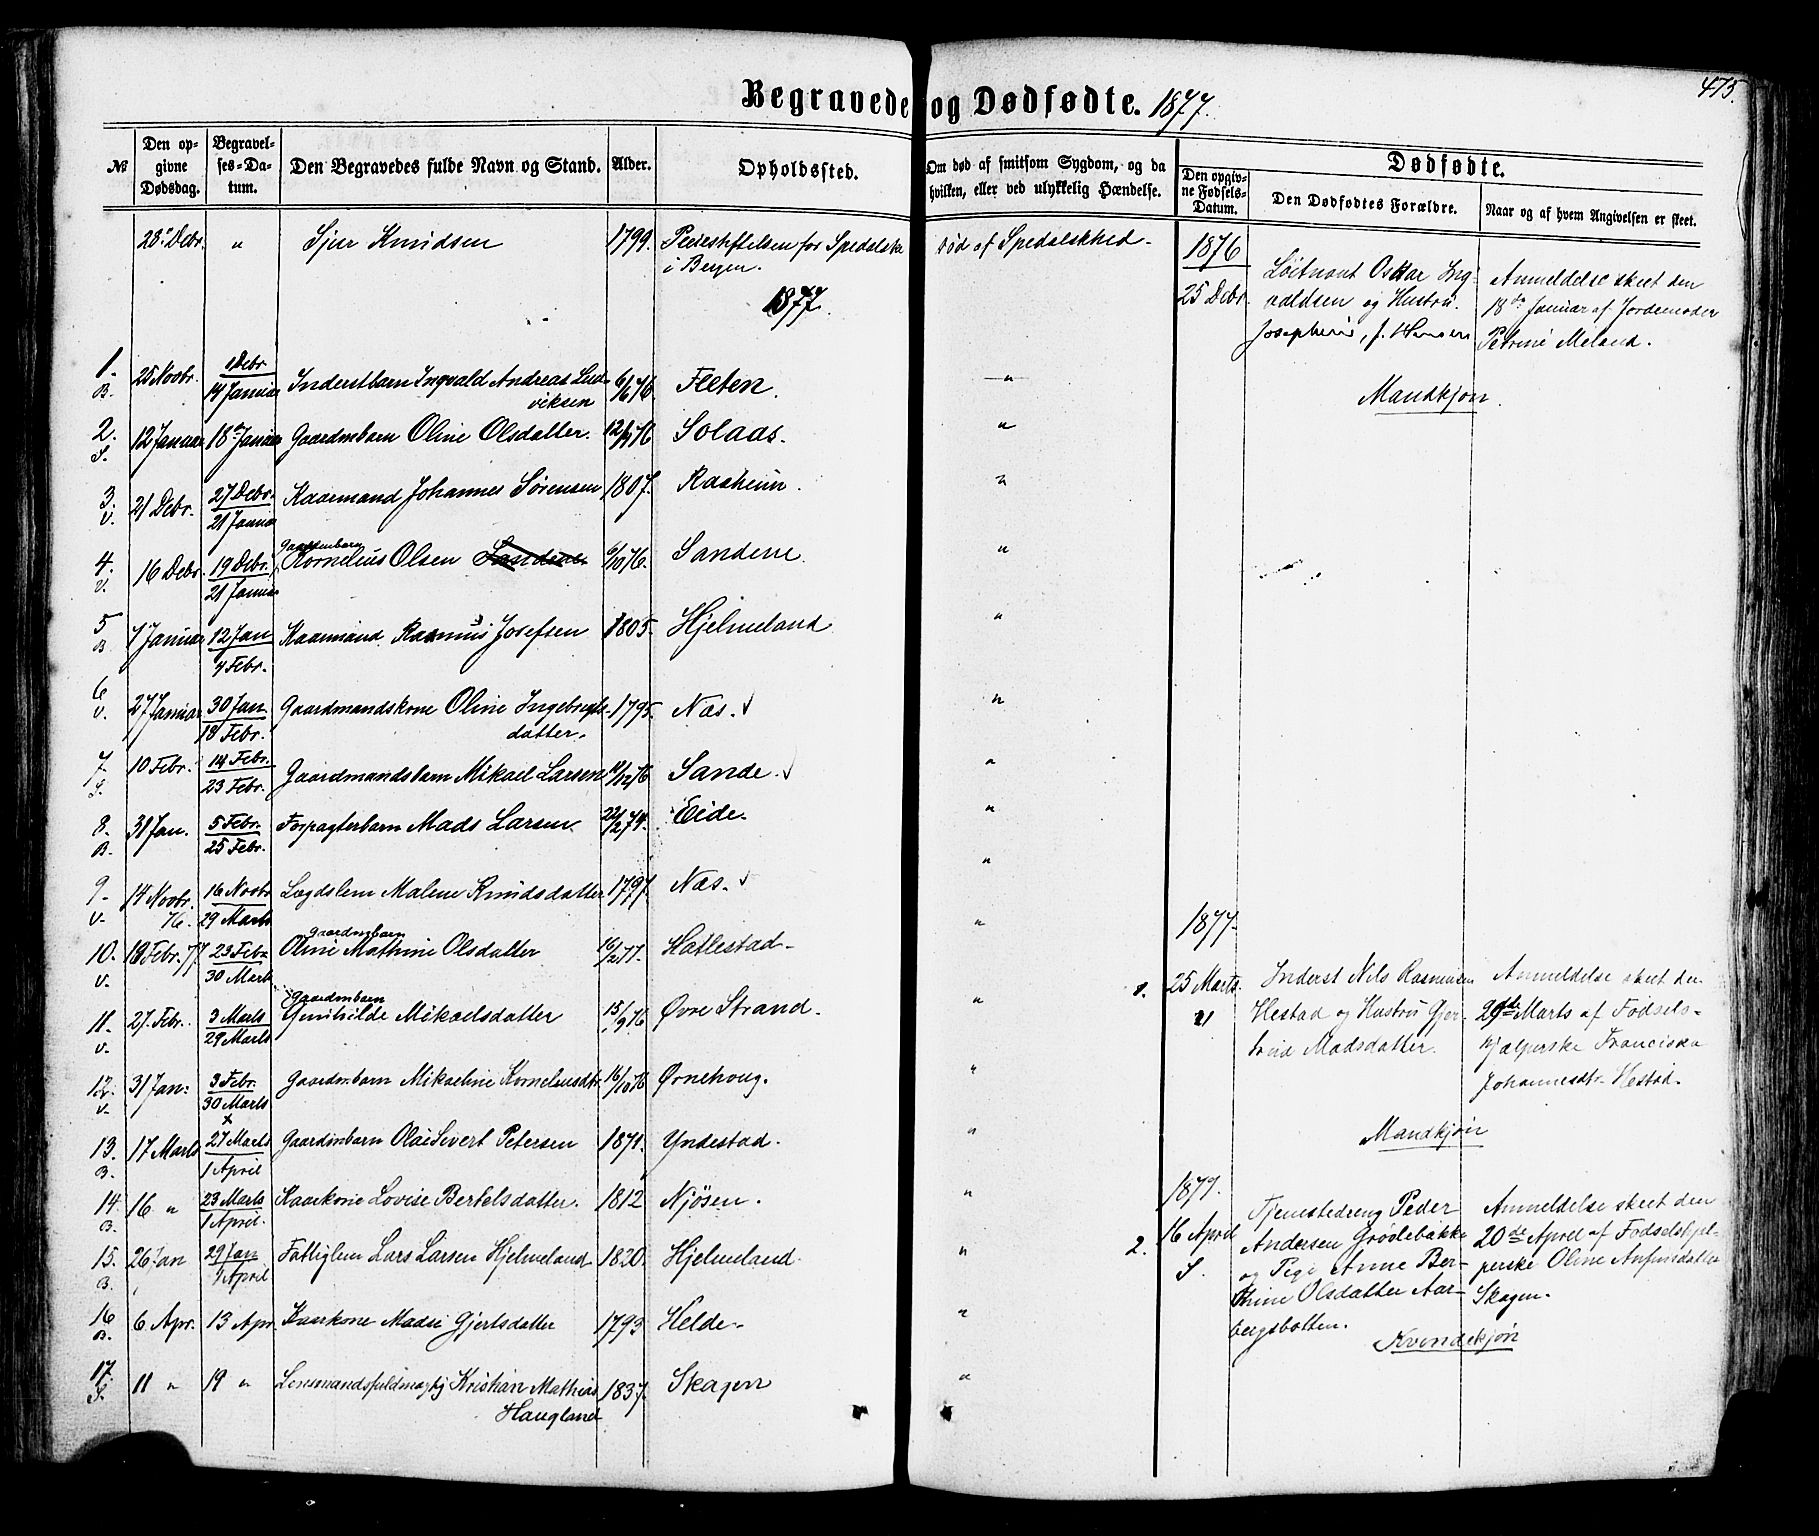 475.
Begravede og Dødfødte. 1877.
№
Den opgivne Dødsdag.
Begravelses-Datum.
Den Begravedes fulde Navn og Stand.
Alder.
Opholdssted.
Om død af smitsom Sygdom, og da hvilken, eller ved ulykkelig Hændelse.
Dødfødte.
Den opgivne Fødsels-Datum.
Den Dødfødtes Forældre.
Naar og af hvem Angivelsen er skeet.
28de Debr. " Sjur Knudsen 1799. Pleiestiftelsen for Spedalske
i Bergen.
Død af Spedalskhed.
1877.
1. B. 25 Novbr. 1 Debr 14 Januar Inderstbarn Ingvald Andreas Lud-
viksen 6/6 76 Fleten. "
2. S. 12 Januar 18de Januar Gaardmbarn Oline Olsdatter. 12/9 76 Solaas. "
3. V. 21 Debr. 27 Debr. 21 Januar Kaarmand Johannes Sørensen 1807. Raaheim. "
4. V. 16 Debr. 19 Debr. 21 Januar Gaardmbarn Kornelius Olsen Sandene 6/10 76. Sandene. "
5 B. 7 Januar 12 Jan 4 Febr. Kaarmand Rasmus Josefsen 1805. Hjelmeland "
6 V. 27 Januar 30 Jan 18 Febr. Gaardmandskone Oline Ingebregts-
datter. 1795. Næs. "
7 S. 10 Febr. 14 Febr. 23 Febr. Gaardmandsbarn Mikael Larsen 14/12 76 Sande. "
8. B. 31 Jan. 5 Febr. 25 Febr. Forpagterbarn Mads Larsen 22/2 74. Eide. "
9. V. 14 Novbr. 76. 16 Novbr 29 Marts Lægdslem Malene Knudsdatter 1797. Næs. "
10. V. 18 Febr. 77 23 Febr 30 Marts Gaardmbarn Oline Mathine Olsdatter 16/2 77. Hatlestad "
11. V. 27. Febr. 3 Marts 29 Marts Gaardmbarn Gunhilde Mikaelsdatter 15/9 76 Øvre Strand. "
12. V. 31 Jan: 3 Febr. 30 Marts Gaardmbarn Mikaeline Korneliusdtr 16/10 76 Ørnehoug. "
13. B. 17 Marts x 27 Marts 1 April Gaardmbarn Olai Sivert Petersen 1871. Yndestad. "
14. B. 16 " 23 Marts 1 April. Kaarkone Lovise Bertelsdatter. 1812 Njøsen. "
15. B. 26 Jan 29 Jan 1 April Fattiglem Lars Larsen Hjelmeland 1820. Hjelmeland. "
16 B. 6 Apr. 13 Apr. Kaarkone Madsi Gjertsdatter 1793 Helde. "
17. S. 11 " 19 " Lensmandsfuldmægtig Kristian Mathias
Haugland 1837. Skagen "
1876
25 Debr.
Løitnant Oskar Ing-
valdsen og Hustru
Josephine, f. Hansen
Anmeldelse skeet den
18de Januar af Jordemoder
Petrine Meland.
Mandkjøn.
1877.
1. 25 Marts.
V
Inderst Nils Rasmussen
Hestad og Hustru Gjer-
trud Madsdatter.
Anmeldelse skeet den
29de Marts af Fødsels-
hjælperske Franciska
Johannesdtr Hestad.
Mandkjøn
1877.
2. 16 April
S.
Tjenestedreng Peder
Andersen Grødebakke
og Pige Anne Ber-
thine Olsdatter Aar-
bergsbotten.
Anmeldelse skeet den
20de April af Fødselshjel-
perske Oline Anfinsdatter
Skagen.
Kvindekjøn